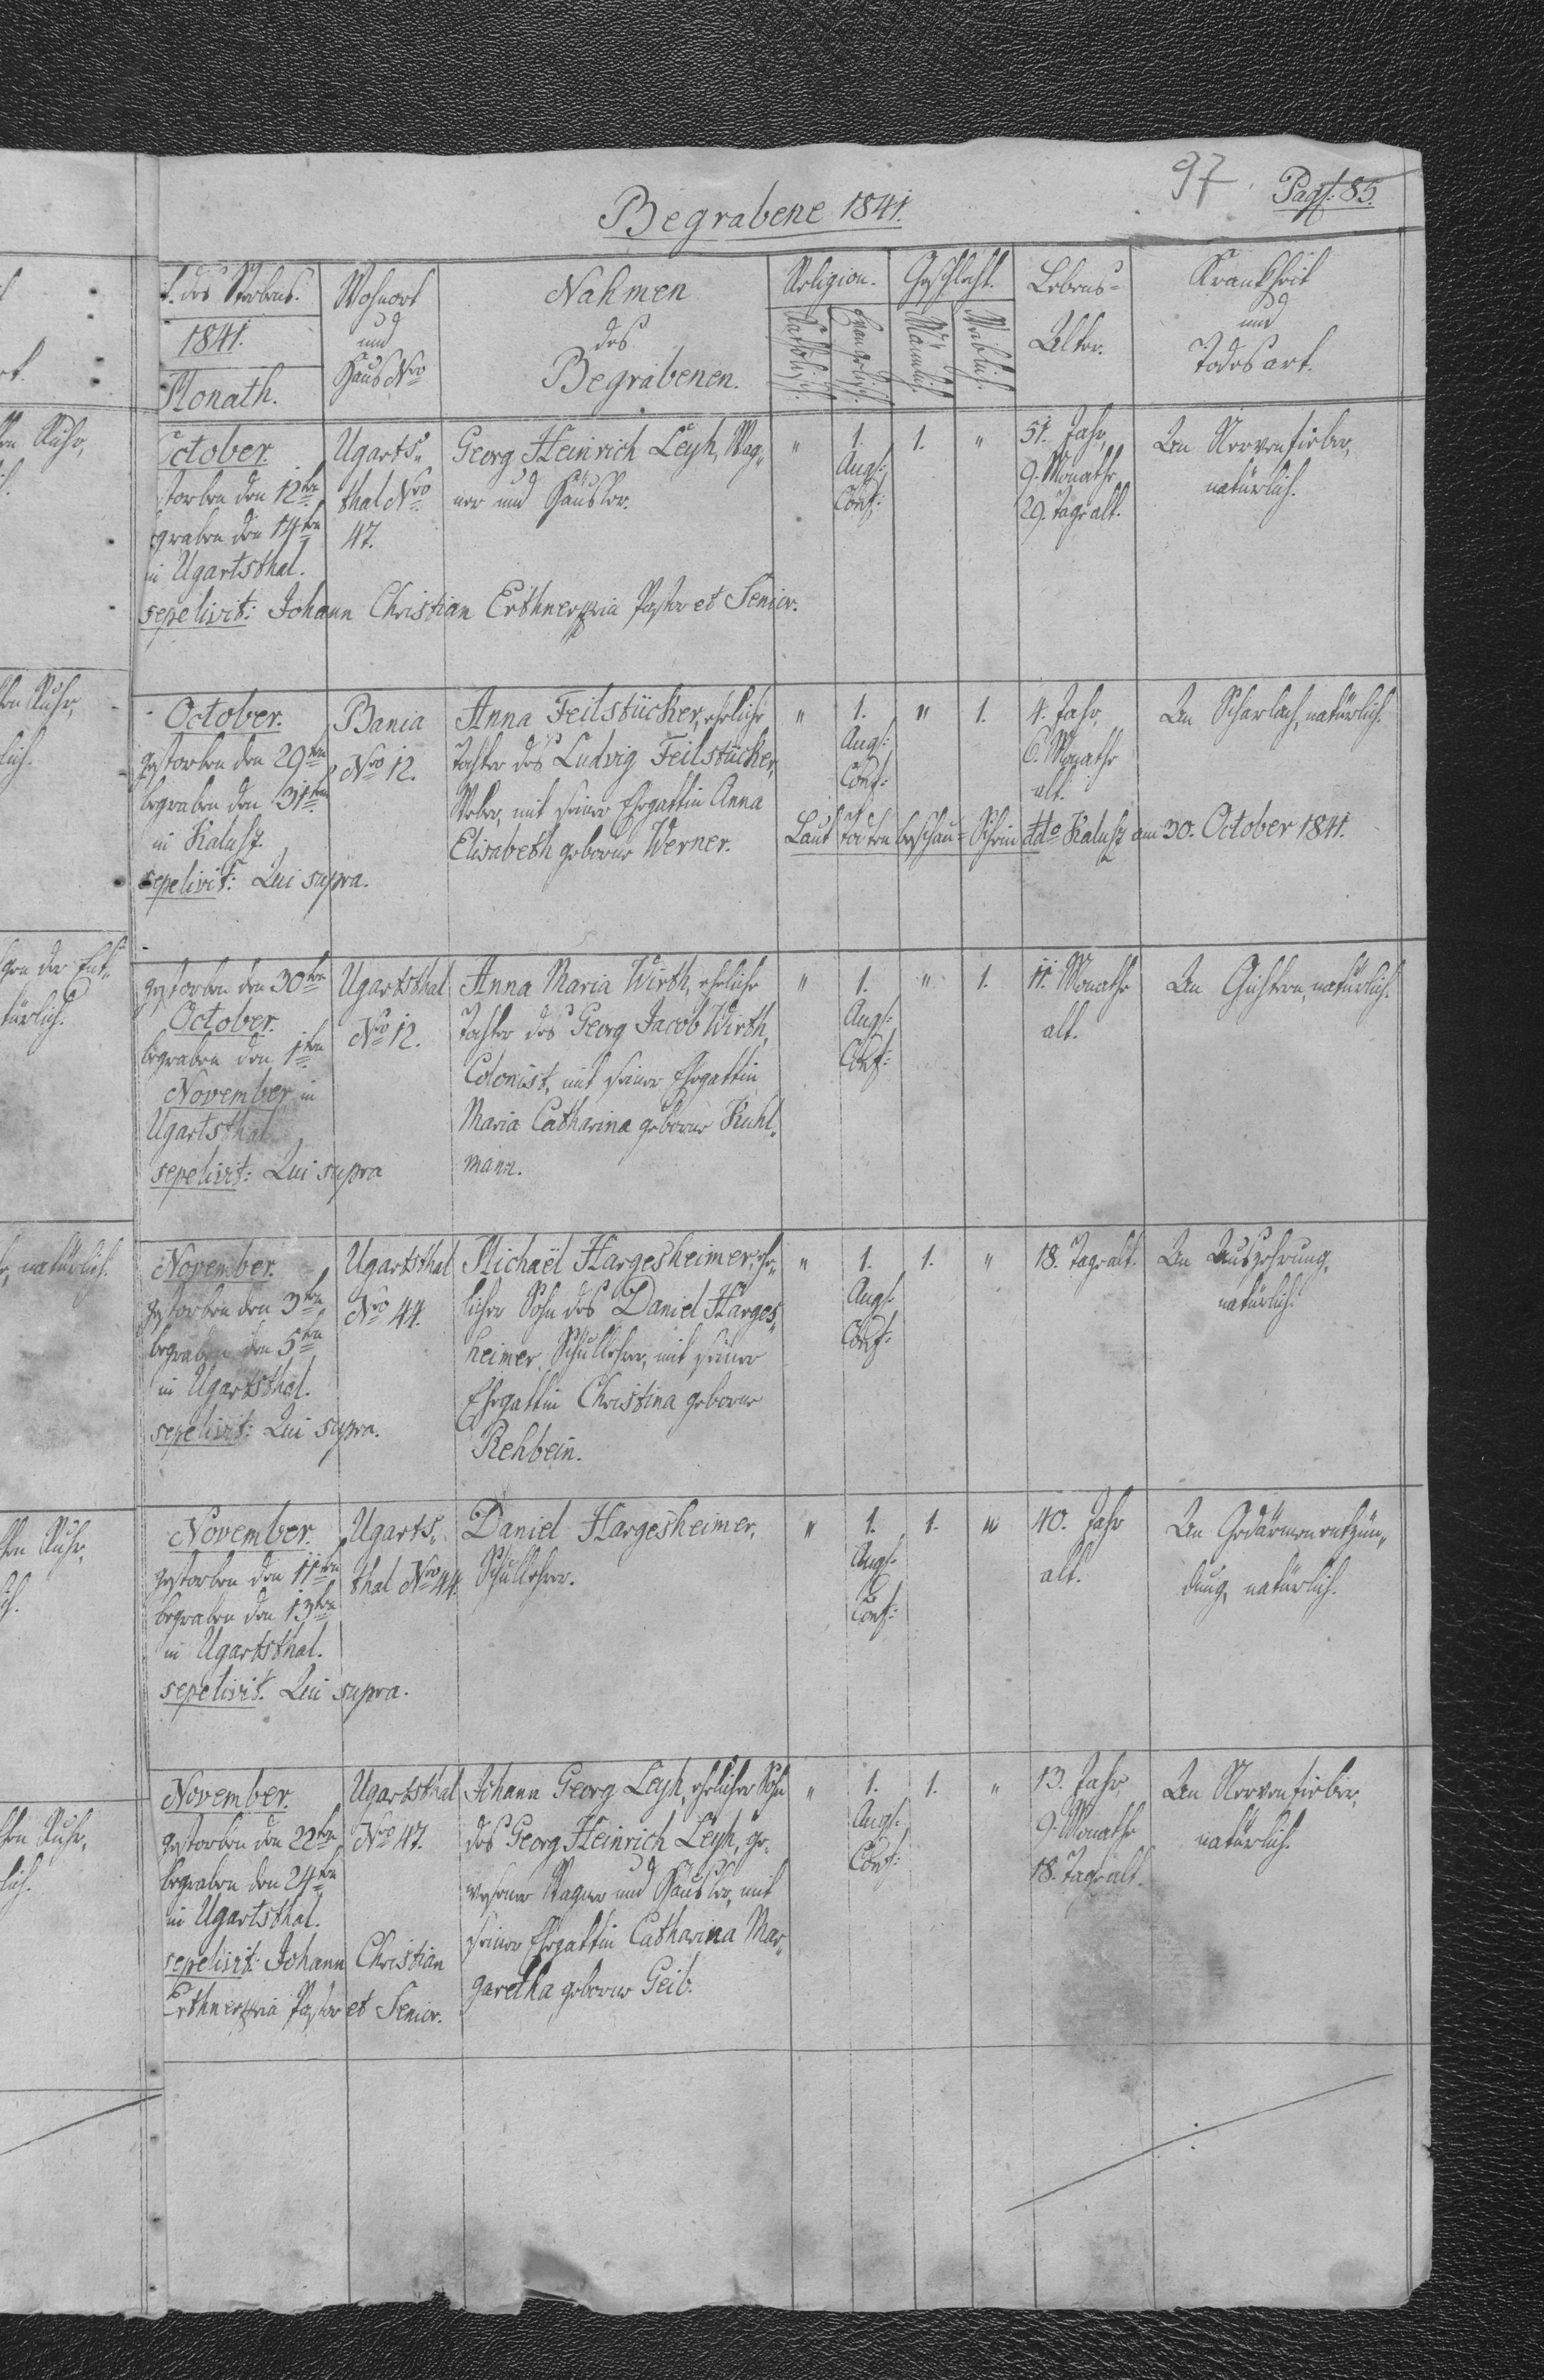 97. Pag: 85.
Begrabene 1841.
t. des Sterbens.
1841.
Monath.
Wohnort
und
Haus Nro
Nahmen
des
Begrabenen.
Religion.
Katholisch.
Evangelisch.
Geschlecht.
Männlich.
Weiblich.
Lebens-
Alter.
Krankheit
und
Todesart.
October.
storben den 12ten
graben den 14ten
in Ugartsthal.
Ugarts-
thal Nro
47.
Georg Heinrich Leyh, Wag-
ner und Häusler.
" 1. 1. "
Augs:
Conf:
51. Jahr,
9. Monathe
29. Tage alt.
An Nervenfieber,
natürlich.
sepelivit: Johann Christian Erthner mpria Pastor et Senior.
October.
gestorben den 29ten
begraben den 31ten
in Kalusz.
sepelivit: Qui supra.
Bania
Nro 12.
Anna Feilstücker, eheliche
Tochter des Ludwig Feilstücker,
Weber, mit seiner Ehegattin Anna
Elisabeth geborne Werner.
" 1. " 1.
Augs:
Conf:
4. Jahr,
6. Monathe
alt.
An Scharlach, natürlich.
Laut Todtenbeschau-Schein ddo Kalusz am 30. October 1841.
gestorben den 30ten
October.
begraben den 1ten
November in
Ugartsthal
sepelivit: Qui supra
Ugartsthal
Nro 12.
Anna Maria Wirth, eheliche
Tochter des Georg Jacob Wirth,
Colonist, mit seiner Ehegattin
Maria Catharina geborne Kuhl-
mann.
" 1. " 1.
Augs:
Conf:
11. Monathe
alt.
An Gichtern, natürlich.
November.
gestorben den 3ten
begraben den 5ten
in Ugartsthal.
sepelivit: Qui supra.
Ugartsthal
Nro 44.
Michaël Hargesheimer, ehe-
licher Sohn des Daniel Harges-
heimer, Schullehrer, mit seiner
Ehegattin Christina geborne
Rehbein.
" 1. 1. "
Augs:
Conf:
18. Tage alt.
An Auszehrung,
natürlich.
November.
gestorben den 11ten
begraben den 13ten
in Ugartsthal.
sepelivit: Qui supra.
Ugarts-
thal Nro 44.
Daniel Hargesheimer,
Schullehrer.
" 1. 1. "
Augs:
Conf:
40. Jahr
alt.
An Gedärmenentzün-
dung, natürlich.
November.
gestorben den 22ten
begraben den 24ten
in Ugartsthal.
sepelivit: Johann Christian
Erthner mpria Pastor et Senior.
Ugartsthal
Nro 47.
Johann Georg Leyh, ehelicher Sohn
des Georg Heinrich Leyh, ge-
wesener Wagner und Häusler, mit
seiner Ehegattin Catharina Mar-
garetha geborne Geib.
" 1. 1. "
Augs:
Conf:
13. Jahr,
9. Monathe
18. Tage alt.
An Nervenfieber,
natürlich.